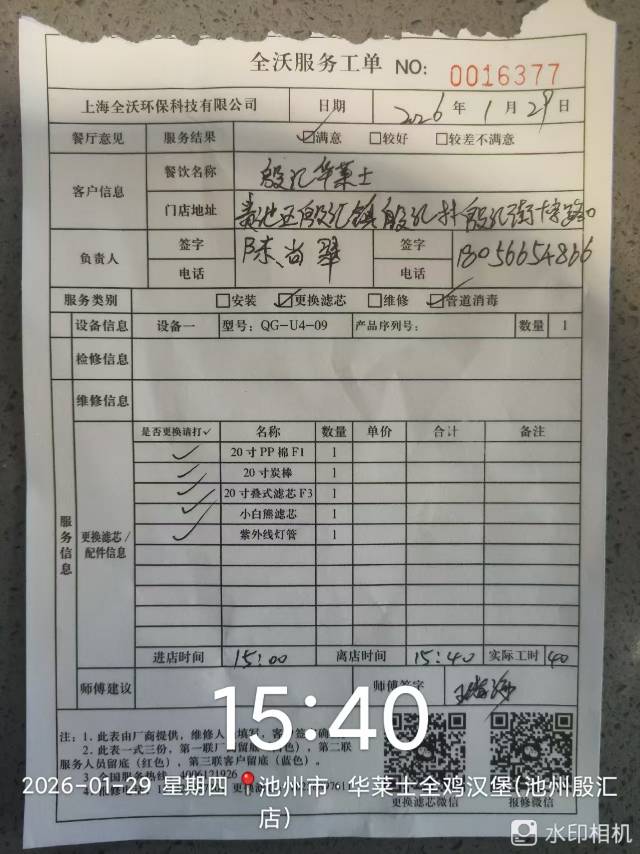 全沃服务工单 NO: 0016377
上海全沃环保科技有限公司 日期 2026年1月29日
餐厅意见 服务结果 ☑满意 □较好 □较差不满意
客户信息 餐饮名称 殷汇华莱士
门店地址 贵池区殷汇镇殷汇村殷汇街十字路口
负责人 签字 陈尚翠 签字
电话 电话 18056654866
服务类别 □安装 ☑更换滤芯 □维修 ☑管道消毒
设备信息 设备一 型号: QG-U4-09 产品序列号: 数量 1
检修信息
维修信息
服务信息
更换滤芯/配件信息
是否更换请打✓ 名称 数量 单价 合计 备注
✓ 20寸PP棉F1 1
✓ 20寸炭棒 1
✓ 20寸叠式滤芯F3 1
✓ 小白熊滤芯 1
✓ 紫外线灯管 1
进店时间 15:00 离店时间 15:40 实际工时 40
师傅建议 师傅签字
15:40
注: 1. 此表由厂商提供, 维修人
2. 此表一式三份, 第一联厂商留底
第二联
服务人员留底(红色), 第三联客户留底(蓝色)。
3. 全国服务热线: 4006121926
更换滤芯微信 报修微信
2026-01-29 星期四 池州市·华莱士全鸡汉堡(池州殷汇店)
水印相机